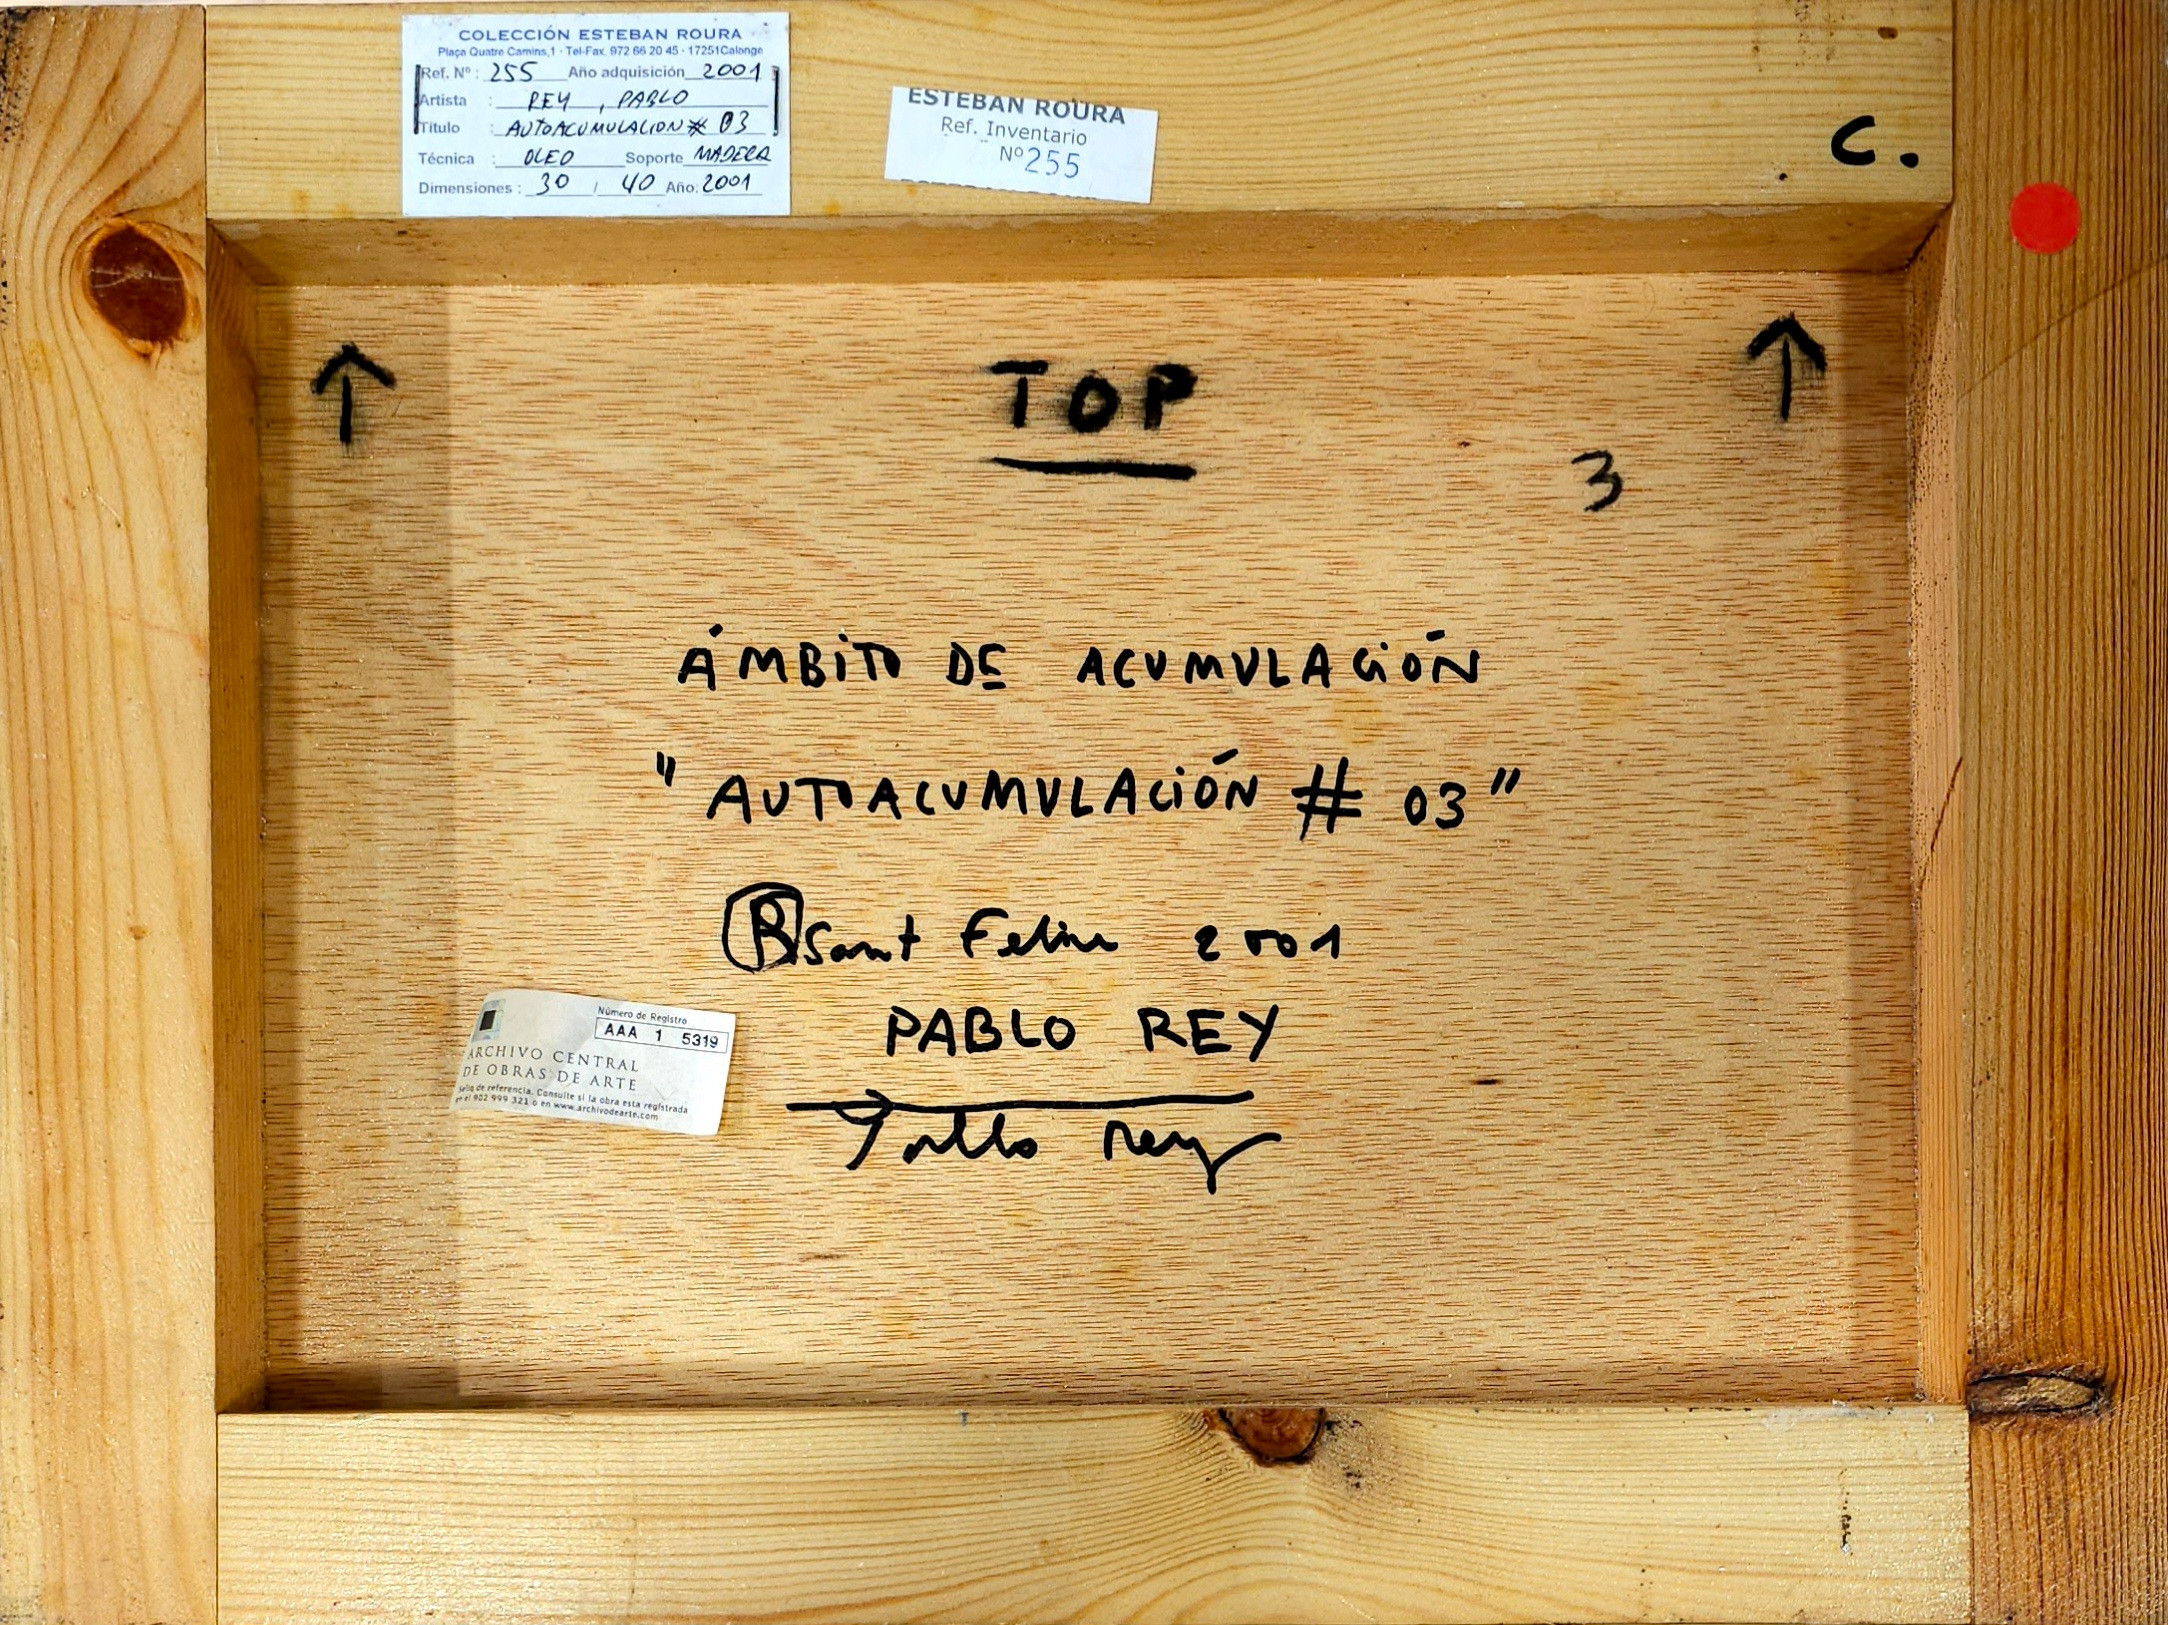 COLECCIÓN ESTEBAN ROURA
Plaça Quatre Camins,1 · Tel-Fax. 972 66 20 45 · 17251Calonge
Ref. Nº : 255 Año adquisición 2001
Artista : REY, PABLO
Título : AUTOACUMULACION # 03
Técnica : OLEO Soporte MADERA
Dimensiones : 30 / 40 Año: 2001
ESTEBAN ROURA
Ref. Inventario
Nº 255
C.
TOP
3
ÁMBITO DE ACUMULACIÓN
"AUTOACUMULACIÓN # 03"
R Sant Feliu 2001
PABLO REY
Pablo Rey
Número de Registro
AAA 1 5319
ARCHIVO CENTRAL
DE OBRAS DE ARTE
Sello de referencia. Consulte si la obra esta registrada
en el 902 999 321 o en www.archivodearte.com